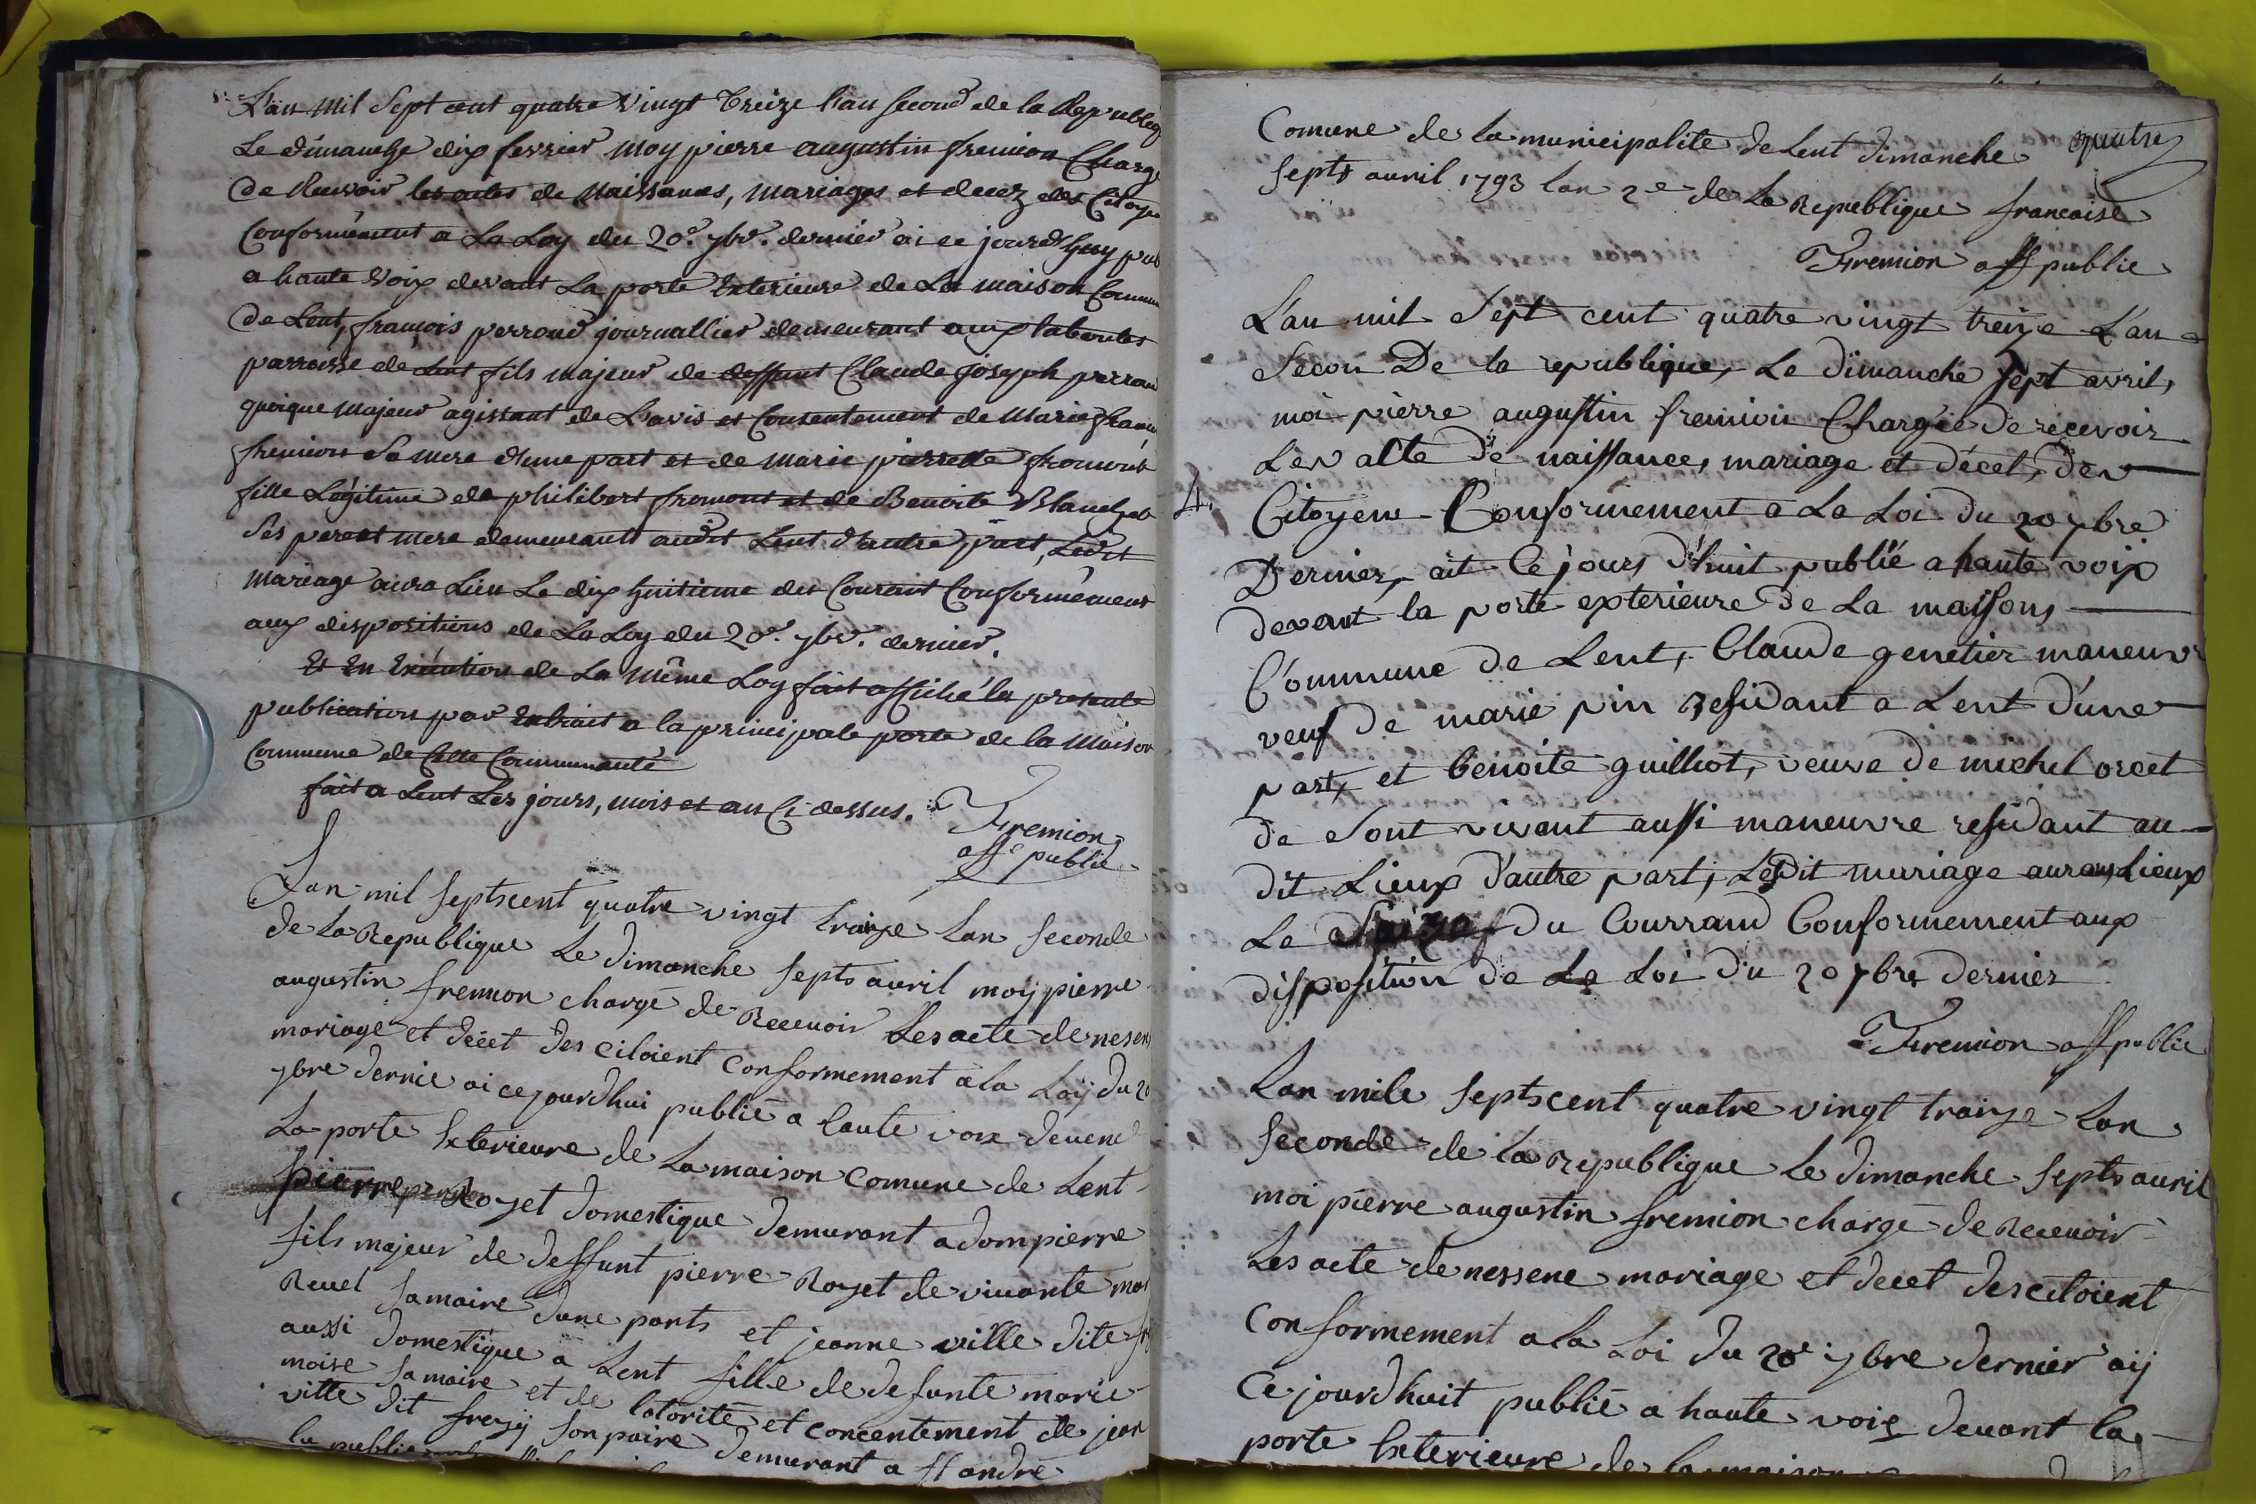 L'an mil Sept cent quatre Vingt Treize l'an second de la Republiq
Le dimanche dix fevrier moy pierre augustin fremion Charg
de Recevoir les actes de Naissances, mariages et decez des Citoye
Conformément a La Loy du 20e. 7bre. dernier ai ce jourd'huy pub
a haute Voix devant La porte Exterieure de La maison Commu
de Lent, françois perroud journallier demeurant aux taboules
parroisse de Lent fils majeur de deffunt Claude joseph perrou
quoique majeur agissant de L'avis et Consentement de Marie fran
fremion Sa mere d'une part et de Marie pierrette fromont
fille Légitime de philibert fromont et de Benoite Blanchet
Ses pere et mere demeurants audit Lent d'autre part, Ledit
mariage aura Lieu Le dix huitieme du Courant Conformément
aux dispositions de La Loy du 20e. 7bre. dernier.
Et En Execution de La même Loy fait affiché la presente
publication par Extrait a la principale porte de la Maison
Commune de Cette Communauté
fait a Lent Les jours, mois et an Ci dessus.
Fremion
aff publie
Lan mil septscent quatre vingt traize Lan seconde
de La Republique Le dimanche septs avril moy pierre
augustin fremion chargé de Recevoir Les acte de nesen
mariage et décet des citoient conformement a la Loÿ du 20
7bre dernie ai cejourdhui publié a haute voix devend
La porte Exterieure de La maison comune de Lent
pierre Royet domestique demurant a dompierre
fils majeur de deffunt pierre Royet de vivante mar
Revel sa maire dune parts et jeanne ville dite fr
aussi domestique a Lent fille de defunte marie
moise sa maire et de latorité et concentement de jean
ville dit frezy son paire demurant a St andré
la publi
Comune de la municipalite de Lent dimanche
quatre
septs avril 1793 lan 2e de La Republique francaise
Fremion aff publie
L'an mil Sept cent quatre vingt treize L'an
Secon De la republique, Le dimanche Sept avril,
moi pierre augustin fremion Chargée de récevoir
Les acte dé naissance, mariage et décet, des
4.
Citoyens Conformement a La Loi du 20 7bre
Dernier, ait Ce jours d'huit publié a haute voix
devant la porte exterieure de La maisons
Commune de Lent, Claude genetier maneuvr
veuf de marie pin Residant a Lent d'une
part, et benoite guilliot, veuve de michel orcet
de Sont vivant aussi maneuvre residant au
dit Lieux d'autre part, Ledit mariage auras Lieux
Le Saize du Courrand Conformement aux
disposition de La Loi du 20 7bre dernier
Fremion aff publie
Lan mile septscent quatre vingt traize Lan
seconde de la Republique Le dimanche septs avril
moi pierre augustin fremion chargé de Recevoir
Les acte de nessene mariage et decet des citoient
conformement a la Loi du 20e 7bre dernier aij
ce jourdhuit publié a haute voix devant la
porte Exterieure de la maison